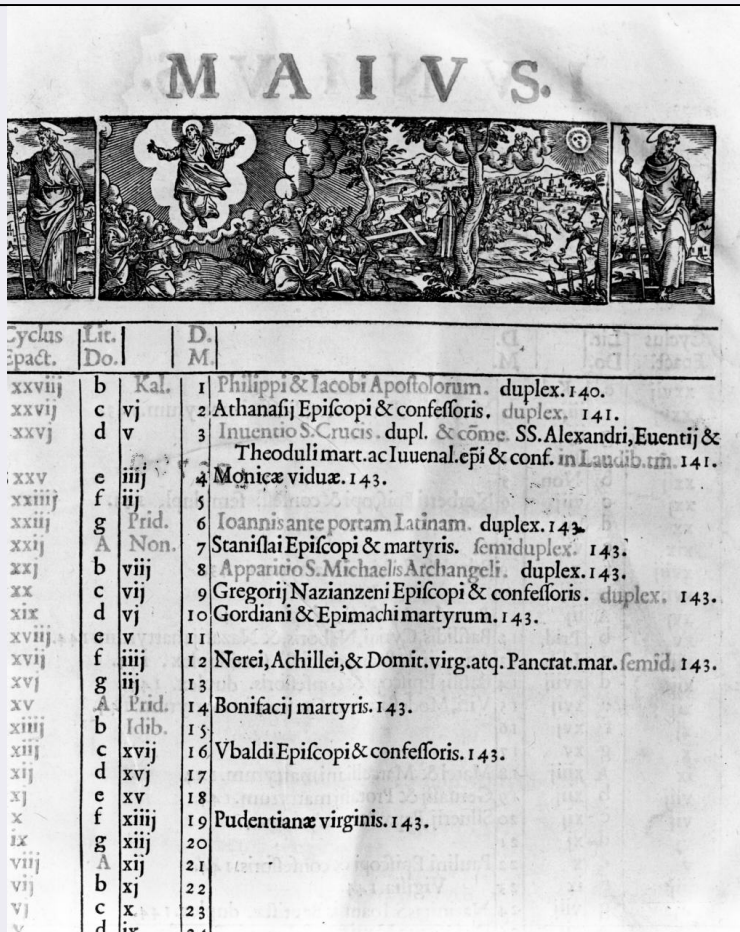 MAIVS.
Cyclus Epact. Lit. Do. D. M.
xxviij b Kal. 1 Philippi & Iacobi Apoſtolorum. duplex. 140.
xxvij c vj 2 Athanaſij Epiſcopi & confeſſoris. duplex. 141.
xxvj d v 3 Inuentio S. Crucis. dupl. & cõme. SS. Alexandri, Euentij &
Theoduli mart. ac Iuuenal. epĩ & conf. in Laudib. tm̃. 141.
xxv e iiij 4 Monicæ viduæ. 143.
xxiiij f iij 5
xxiij g Prid. 6 Ioannis ante portam Latinam. duplex. 143.
xxij A Non. 7 Staniſlai Epiſcopi & martyris. ſemiduplex. 143.
xxj b viij 8 Apparitio S. Michaelis Archangeli. duplex. 143.
xx c vij 9 Gregorij Nazianzeni Epiſcopi & confeſſoris. duplex. 143.
xix d vj 10 Gordiani & Epimachi martyrum. 143.
xviij e v 11
xvij f iiij 12 Nerei, Achillei, & Domit. virg. atq. Pancrat. mar. ſemid. 143.
xvj g iij 13
xv A Prid. 14 Bonifacij martyris. 143.
xiiij b Idib. 15
xiij c xvij 16 Vbaldi Epiſcopi & confeſſoris. 143.
xij d xvj 17
xj e xv 18
x f xiiij 19 Pudentianæ virginis. 143.
ix g xiij 20
viij A xij 21
vij b xj 22
vj c x. 23
v d ix 24